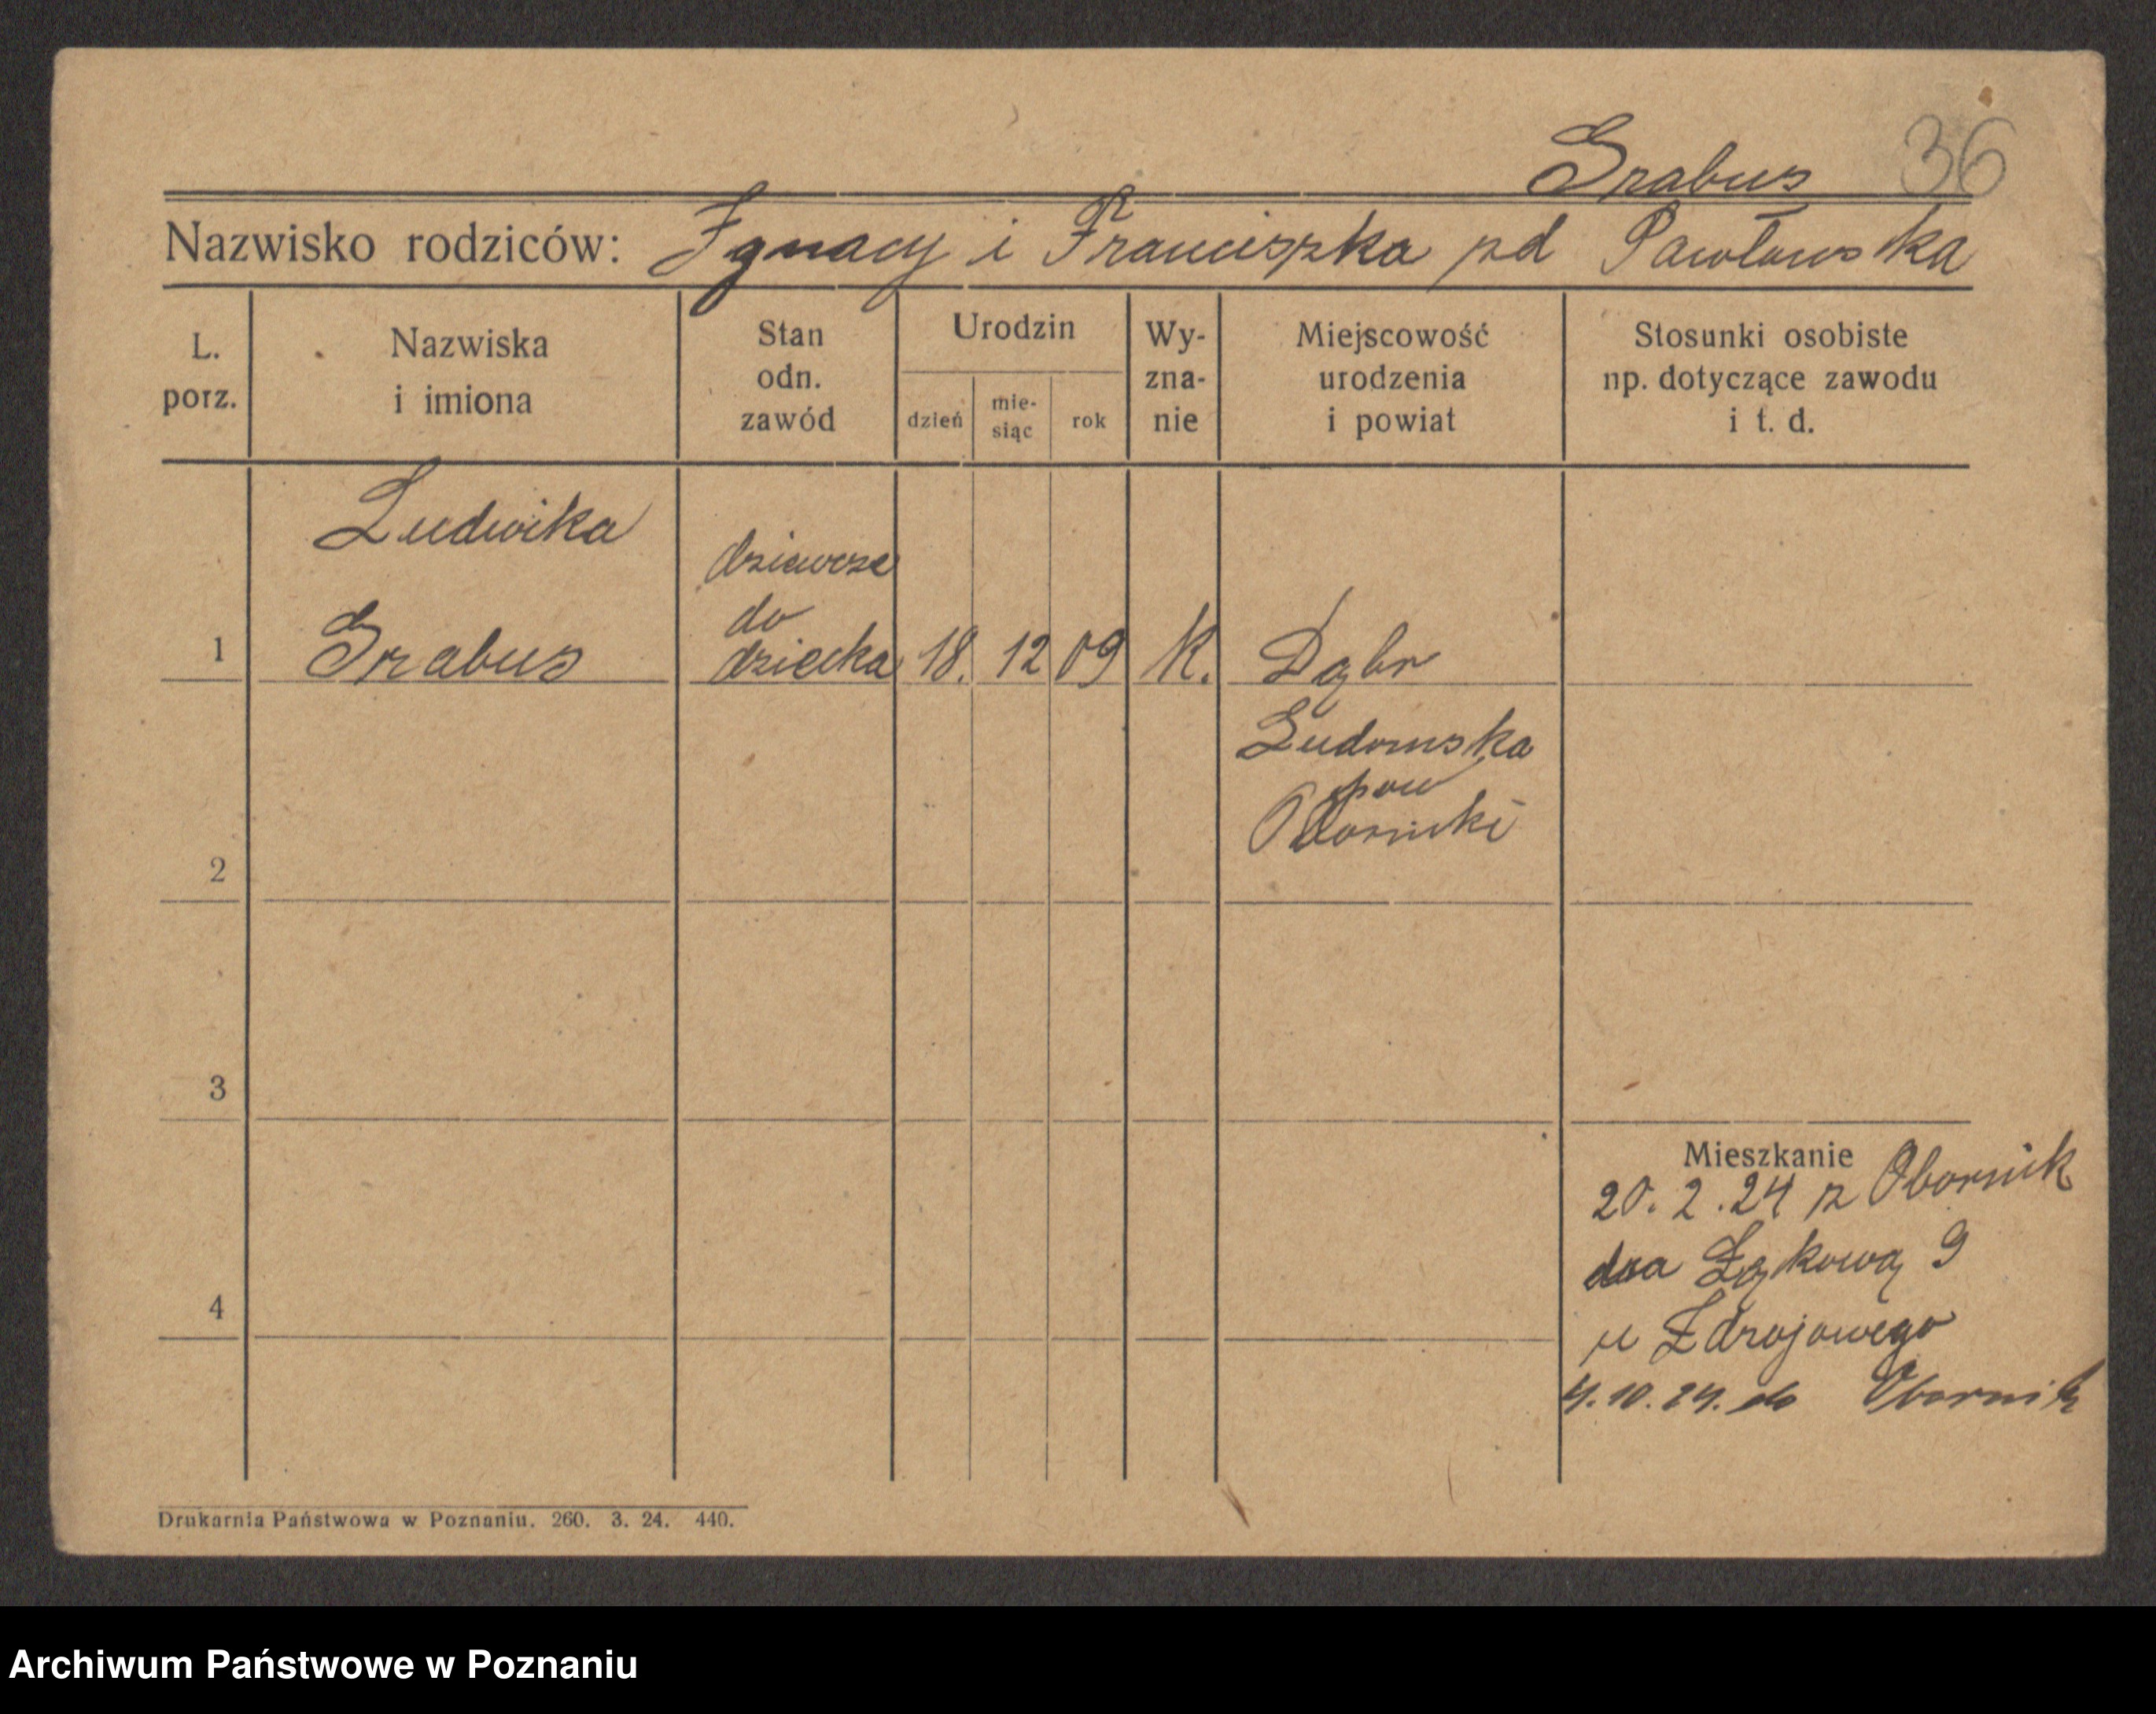 Grabus 36
Nazwisko rodziców: Ignacy i Franciszka zd Pawłowska
L. porz.
Nazwiska i imiona
Stan odn. zawód
Urodzin
dzień
mie-siąc
rok
Wy-zna-nie
Miejscowość urodzenia i powiat
Stosunki osobiste np. dotyczące zawodu i t. d.
Ludwika
dziewcze
do
1 Grabus dziecka 18. 12 09 K. Dąbr
Ludomska
pow
Oborniki
2
3
Mieszkanie
20. 2. 24 z Obornik
na Łąkową 9
4
u Zdrojowego
4. 10. 24. do Obornik
Drukarnia Państwowa w Poznaniu. 260. 3. 24. 440.
Archiwum Państwowe w Poznaniu